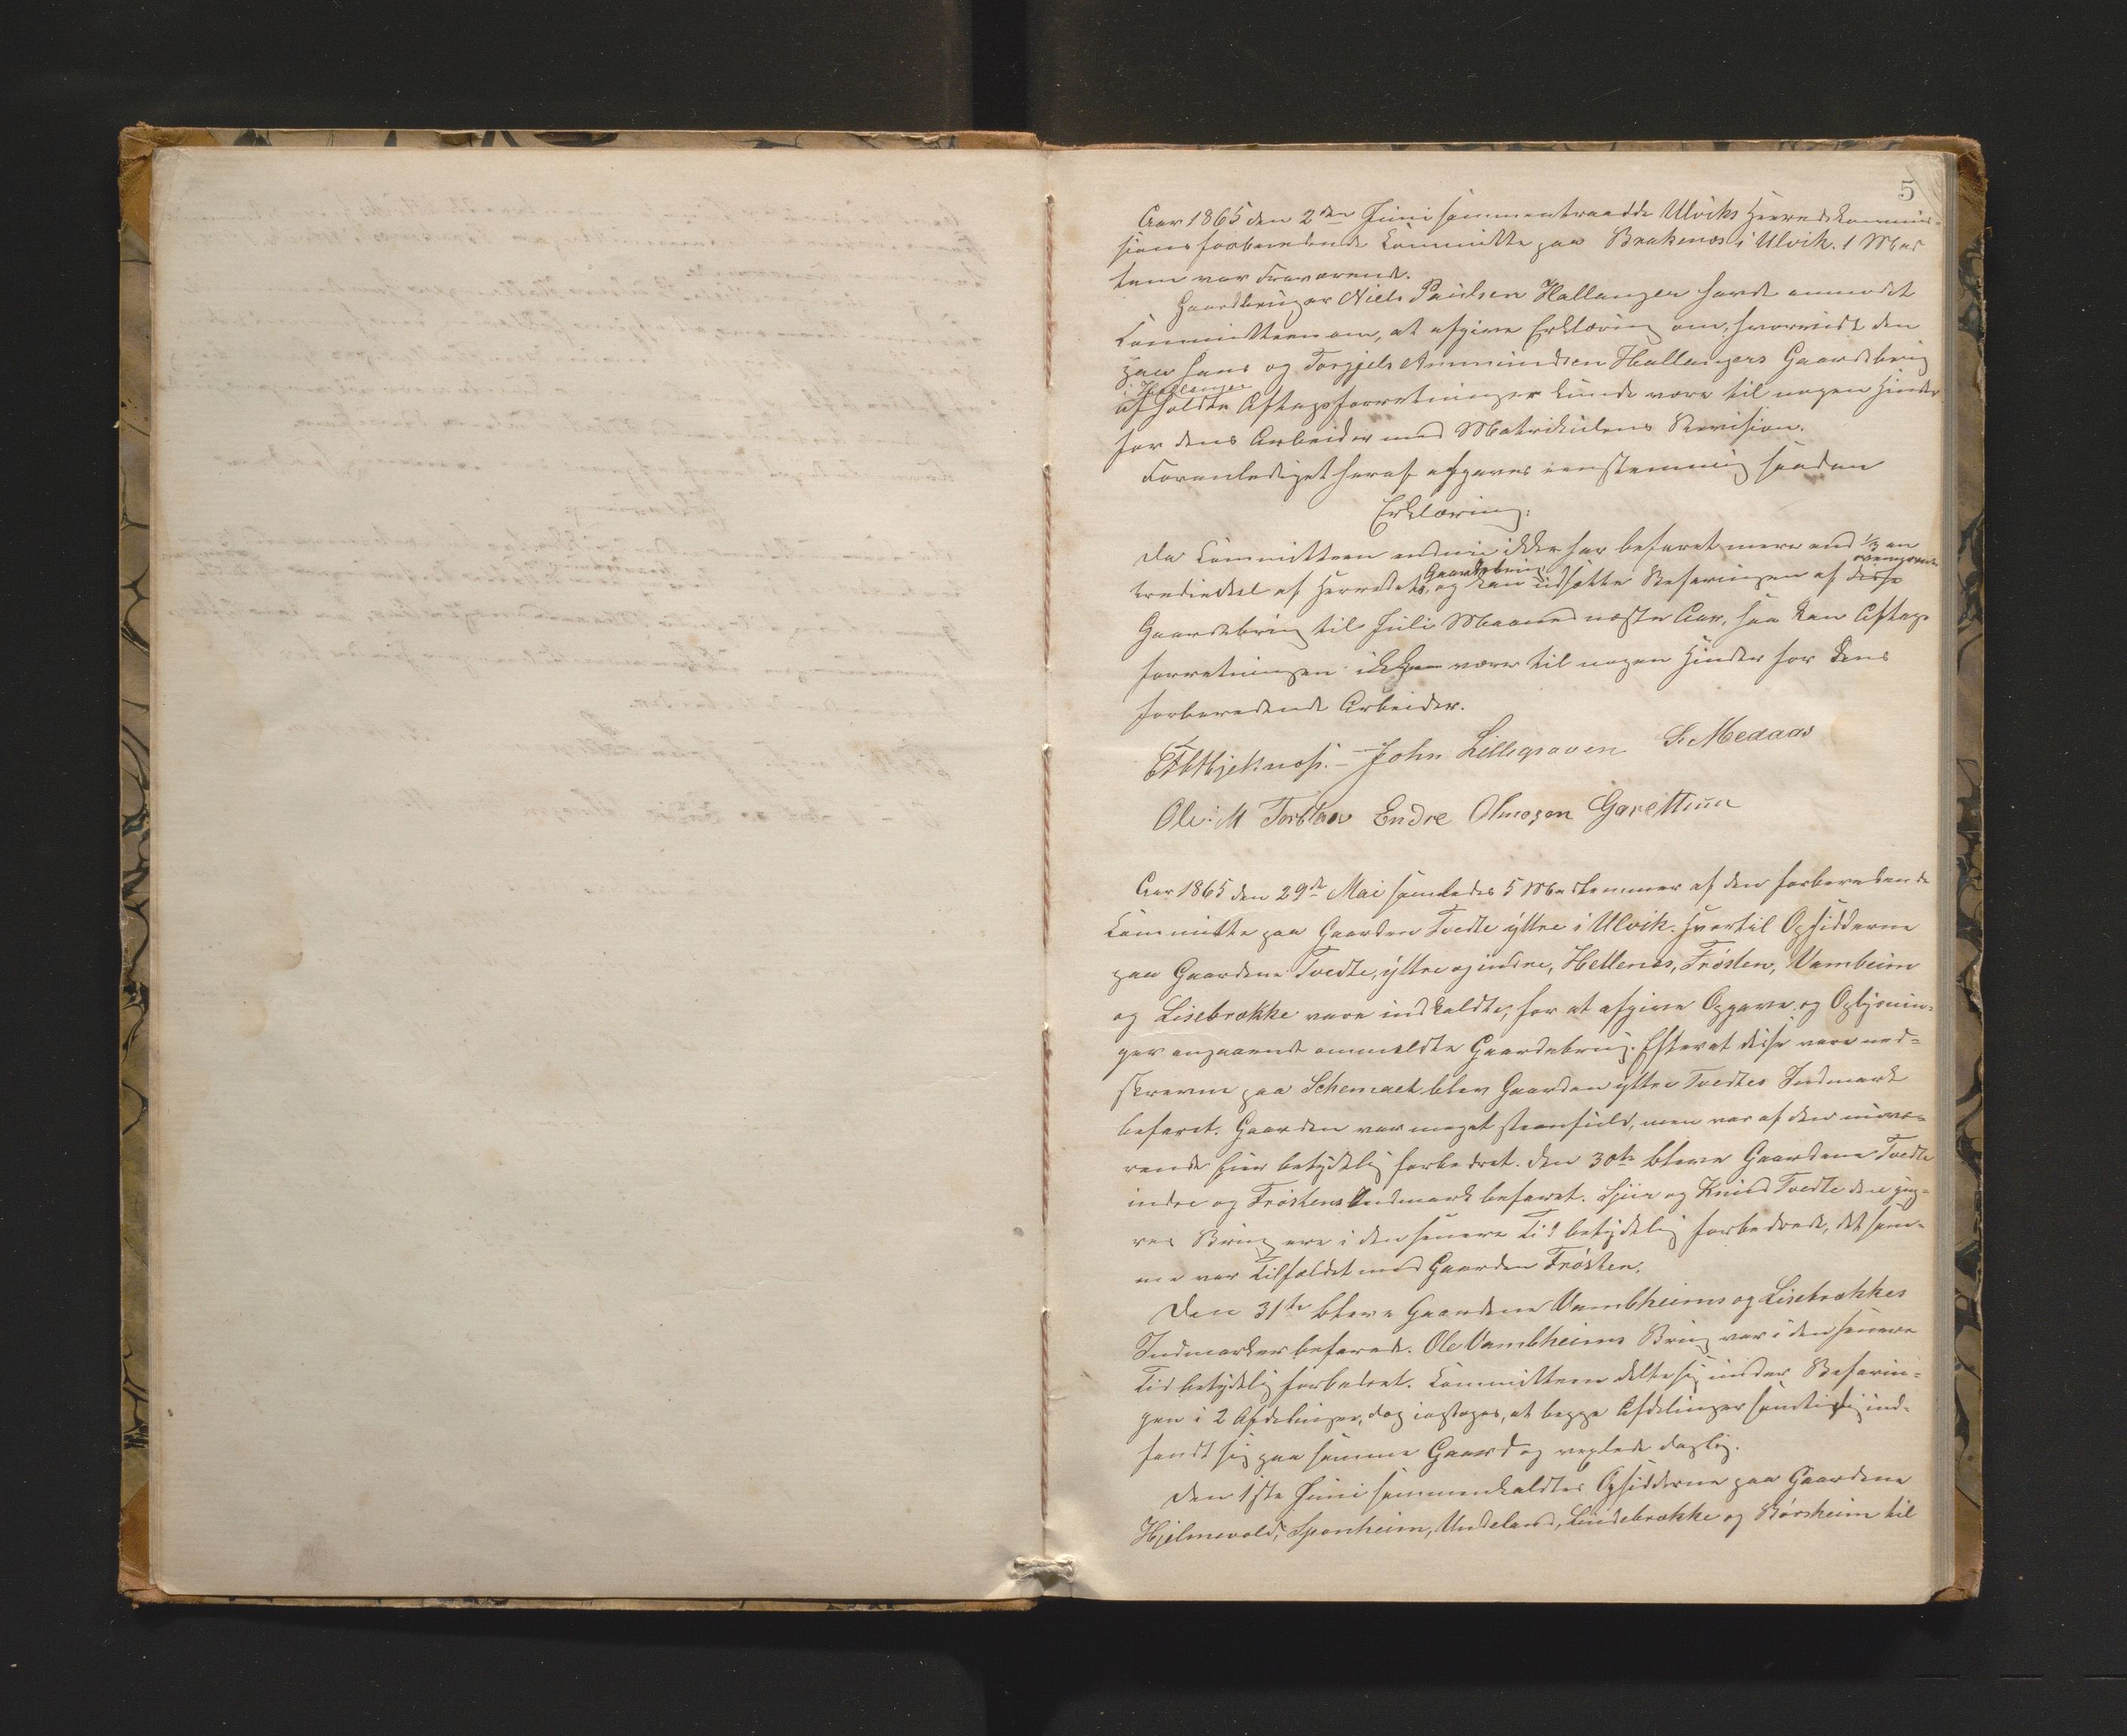 5
Aar 1865 den 2den Juni sammentraadde Ulviks Herredskommis-
sions forberedende Committe paa Brakenæs i Ulvik. 1 Med
lem var fraværende.
Gaardbruger Niels Paulsen Hallanger havde anmodet
Committeen om, at afgive Erklæring om, hvorvidt den
paa hans og Torgjels Ammundsen Hallangers Gaardsbrug
i Hallanger
afholdte Aftagsforretninger kunde være til nogen Hinder
for dens Arbeider med Matrikulens Revision.
Foranlediget heraf afgaves eenstemmig saadan
Erklæring:
Da Committeen endnu ikke har befaret mere end 1/3 en
Gaardebrug ovennævnte
trediedel af Herredets, og kan udsætte Befaringen af disse
Gaardebrug til Juli Maaned næste Aar, saa kan Aftags
forretningen ikke være til nogen Hinder for dens
forberedende Arbeider.
Hjeltnæs. - John Lillegraven S. Medaas
Ole: M Torblaa Endre Olmogen Garetun
Aar 1865 den 29de Mai samledes 5 Medlemmer af den forberedende
Committe paa Gaarden Tvedte yttre i Ulvik. Hvortil Opsidderne
paa Gaardene Tvedte, yttre og indre, Hellenes, Frøsten, Vambeim
og Lisebrække vare indkaldte, for at afgive Opgave og Oplysnin-
ger angaaende anmeldte Gaardebrug. Efterat disse vare ned-
skrevne paa Schemaet blev Gaarden yttre Tvedtes Indmark
befaret. Gaarden var meget steenfuld, men var af den nuvæ-
rende Eier betydelig forbedret. Den 30te bleve Gaardene Tvedte
indre og Frøstens Indmark befaret. Sjur og Knud Tvedte de yng-
res Brug ere i den senere Tid betydelig forbedrede, det sam-
me var Tilfældet med Gaarden Frøsten.
Den 31te bleve Gaardene Vambheims og Lisebrækkes
Indmarker befarede. Ole Vambheims Brug var i den senere
Tid betydelig forbedret. Committeen delte sig under Befarin-
gen i 2 Afdelinger, dog iagtoges, at begge Afdelinger samtidig ind-
fandt sig paa samme Gaard og vexlede daglig.
Den 1ste Juni sammenkaldtes Opsidderne paa Gaardene
Hjelmevold, Sponheim, Undeland, Lindebrække og Børsheim til